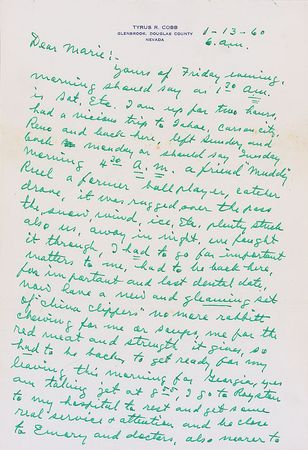 TYRUS R. COBB
GLENBROOK, DOUGLAS COUNTY
NEVADA
1-13-60
6. am.
Dear Marie:-
Yours of Friday evening,
morning should say as 1 30 A.M.
is Sat, Etc. I am up for two hours,
had a vicious trip to Tahoe, Carson city,
Reno and back here, left Sunday and
back monday or should say Tuesday
morning 4 30 A.M. a friend "Muddy"
Ruel a former ball player, catcher
drove, it was rugged over the pass
the snow, wind, ice, Etc, plenty stuck
also us, away in night, we fought
it through, I had to go for important
matters to me, had to be back here,
for important and last dental date,
now have a new and gleaming set
of "china clippers" no more rabbitt
chewing for me or soups, me for the
red meat and strength it gives, so
had to be back, to get ready for my
leaving this morning for Georgia, yes
am taking jet at 8 30, I go to Royston
to my hospital to rest and get some
real service & attention and be close
to Emory and doctors, also nearer to